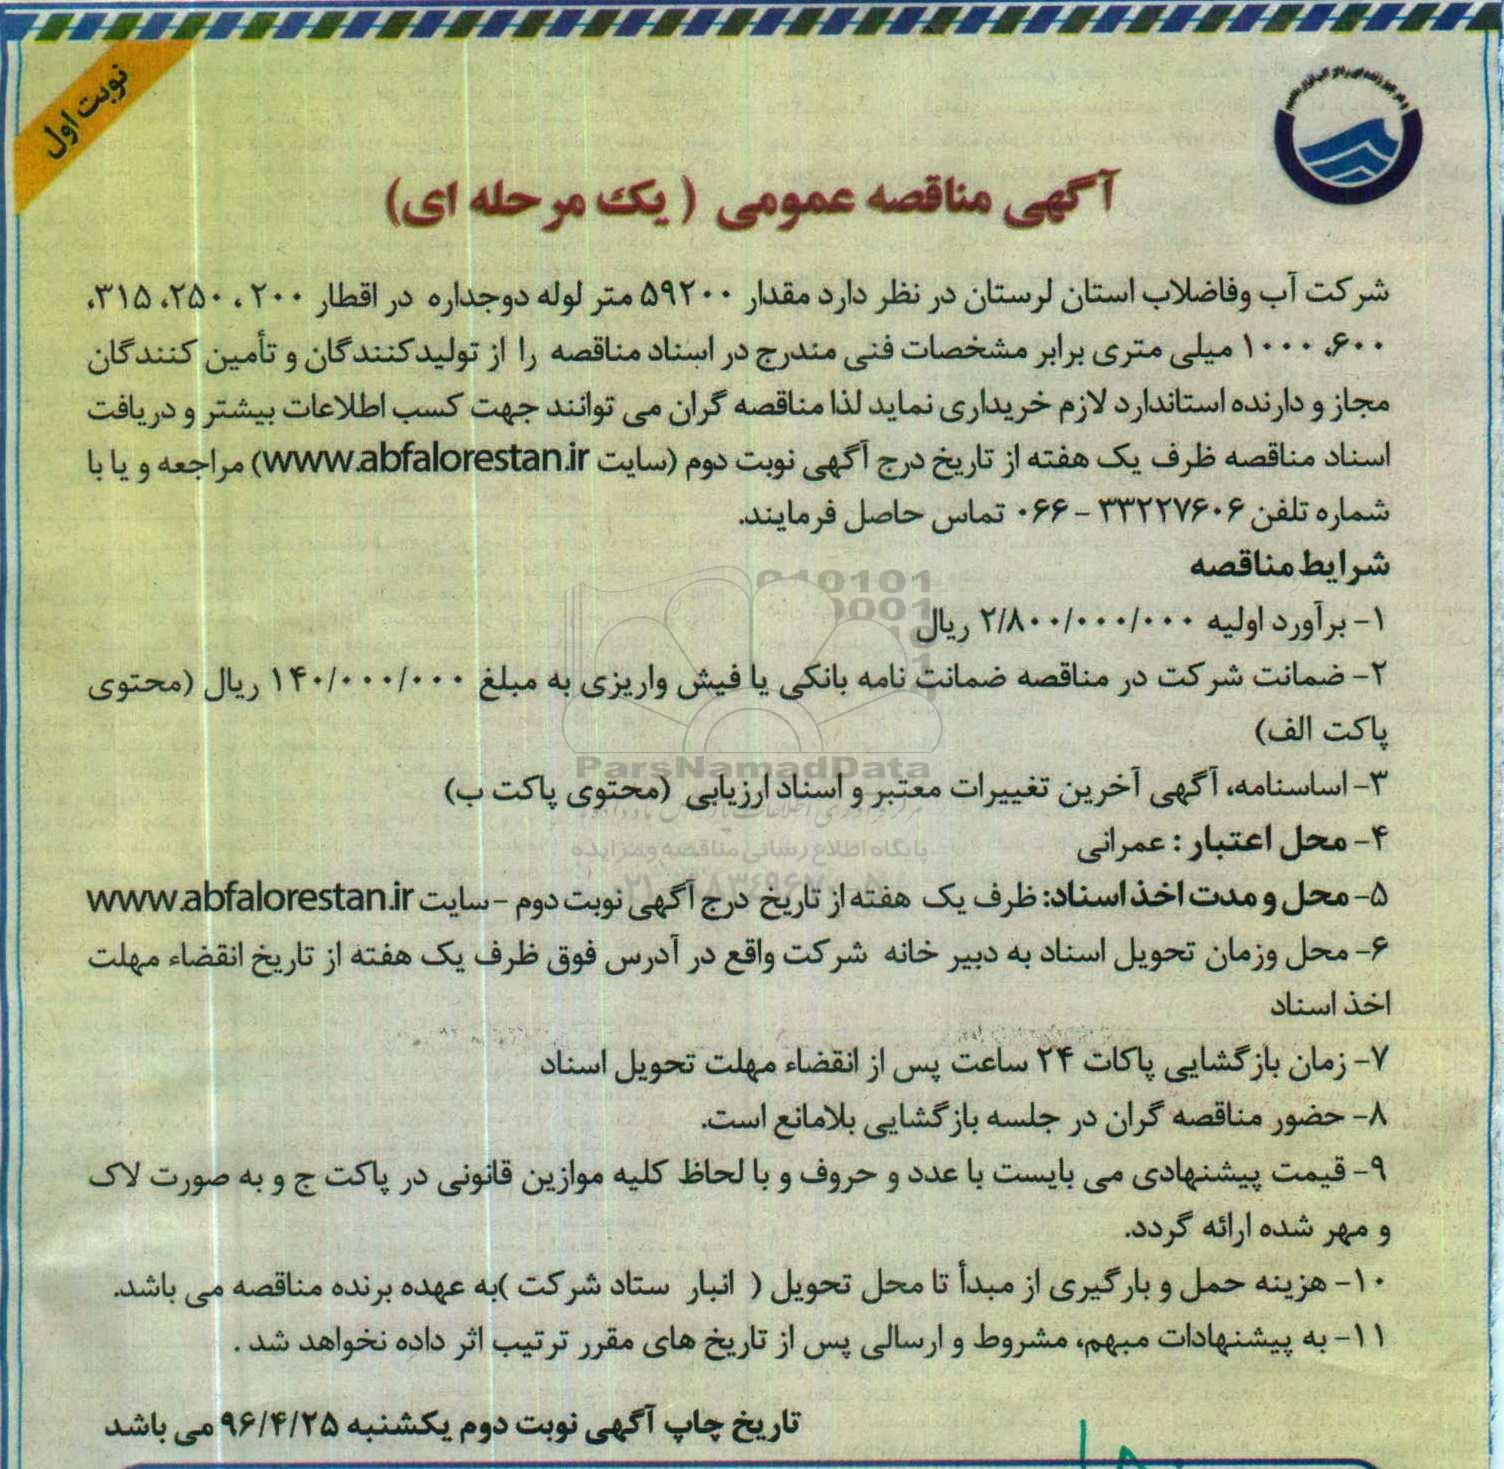 نوبت اول
آگهی مناقصه عمومی ( یک مرحله ای)
شرکت آب وفاضلاب استان لرستان در نظر دارد مقدار ۵۹۲۰۰ متر لوله دوجداره در اقطار ۲۰۰ ، ۲۵۰، ۳۱۵،
۶۰۰، ۱۰۰۰ میلی متری برابر مشخصات فنی مندرج در اسناد مناقصه را از تولیدکنندگان و تأمین کنندگان
مجاز و دارنده استاندارد لازم خریداری نماید لذا مناقصه گران می توانند جهت کسب اطلاعات بیشتر و دریافت
اسناد مناقصه ظرف یک هفته از تاریخ درج آگهی نوبت دوم (سایت www.abfalorestan.ir) مراجعه و یا با
شماره تلفن ۳۳۲۲۷۶۰۶ - ۰۶۶ تماس حاصل فرمایند.
شرایط مناقصه
۱- برآورد اولیه ۲/۸۰۰/۰۰۰/۰۰۰ ریال
۲- ضمانت شرکت در مناقصه ضمانت نامه بانکی یا فیش واریزی به مبلغ ۱۴۰/۰۰۰/۰۰۰ ریال (محتوی
پاکت الف)
ParsNamadData
۳- اساسنامه، آگهی آخرین تغییرات معتبر و اسناد ارزیابی (محتوی پاکت ب)
۴- محل اعتبار : عمرانی
پایگاه اطلاع رسانی مناقصه ومزایده
۵- محل و مدت اخذ اسناد: ظرف یک هفته از تاریخ درج آگهی نوبت دوم -سایت www.abfalorestan.ir
۶- محل وزمان تحویل اسناد به دبیر خانه شرکت واقع در آدرس فوق ظرف یک هفته از تاریخ انقضاء مهلت
اخذ اسناد
۷- زمان بازگشایی پاکات ۲۴ ساعت پس از انقضاء مهلت تحویل اسناد
۸- حضور مناقصه گران در جلسه بازگشایی بلامانع است.
۹- قیمت پیشنهادی می بایست با عدد و حروف و با لحاظ کلیه موازین قانونی در پاکت ج و به صورت لاک
و مهر شده ارائه گردد.
۱۰- هزینه حمل و بارگیری از مبدأ تا محل تحویل ( انبار ستاد شرکت )به عهده برنده مناقصه می باشد.
۱۱- به پیشنهادات مبهم، مشروط و ارسالی پس از تاریخ های مقرر ترتیب اثر داده نخواهد شد .
تاریخ چاپ آگهی نوبت دوم یکشنبه ۹۶/۴/۲۵ می باشد